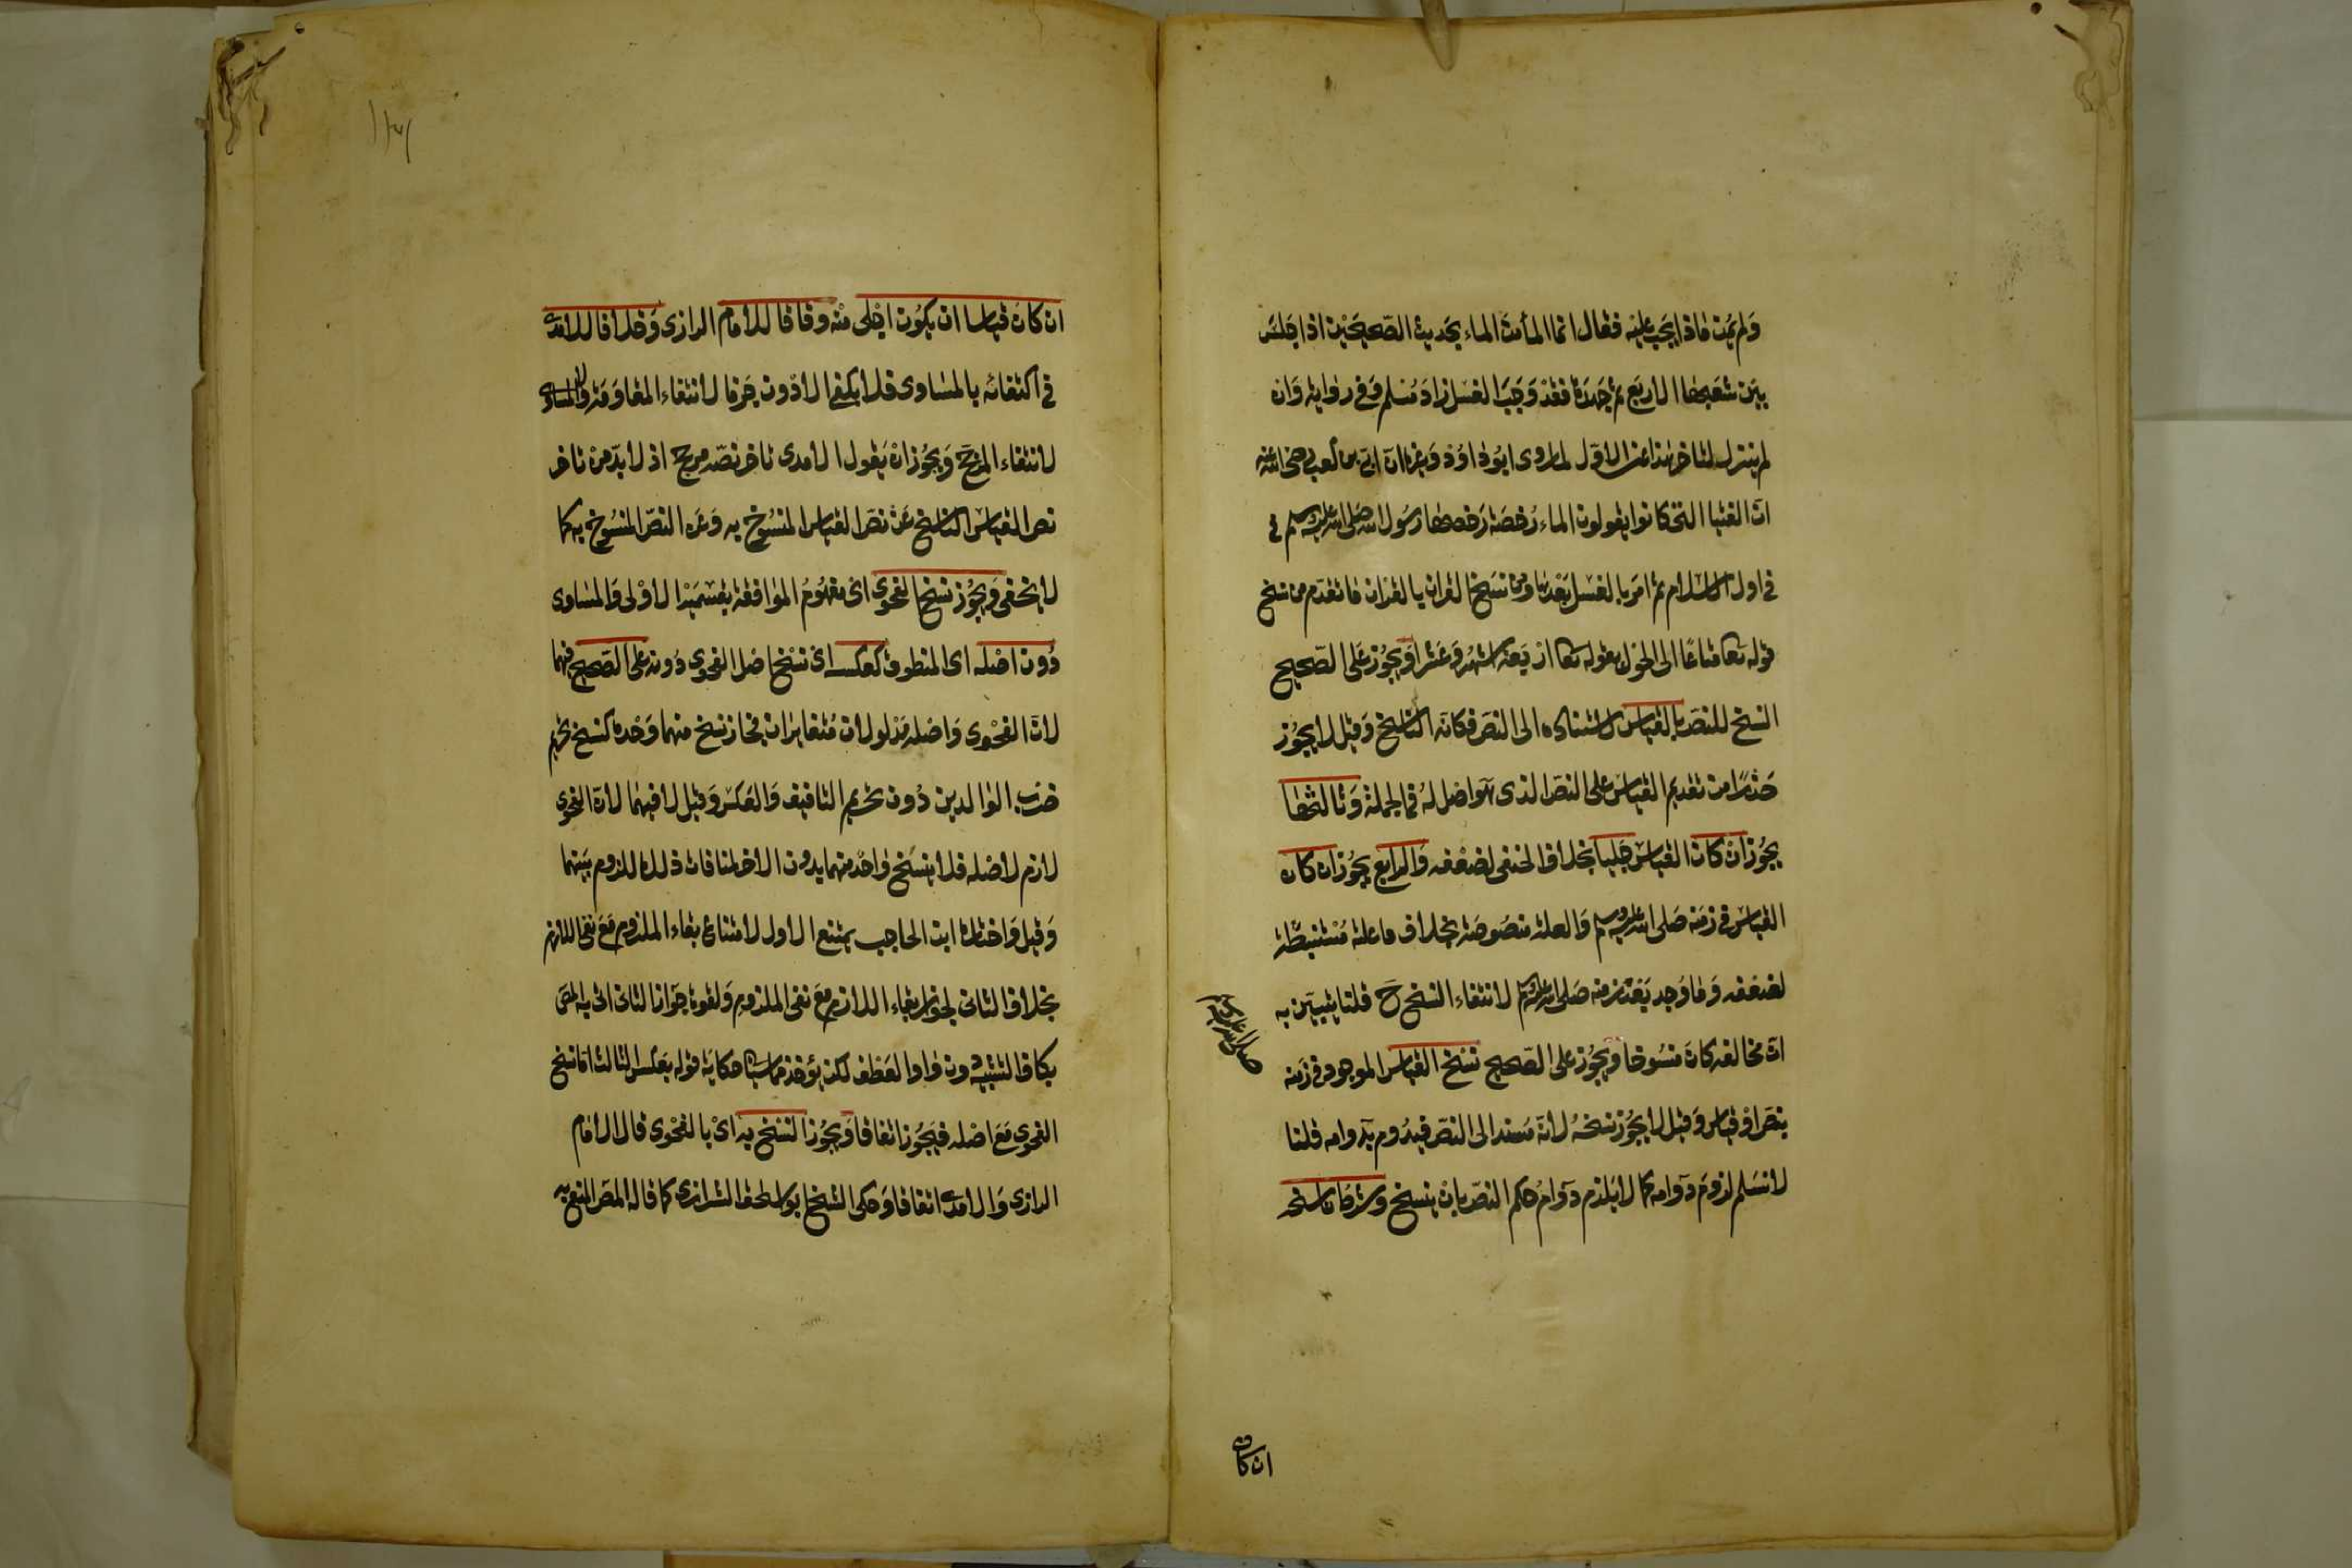 ولم يمن ماذا يجب عليه فقال انما الماء من الماء بحديث الصحيحين اذا جلس
بين شعبها الاربع ثم جهدها فقد وجب الغسل زاد مسلم وفى رواية وان
لم ينزل لتاخر هذا عن الاول لما روى ابو داود وغيره ان ابى بن كعب رضى الله عنه
ان الفتيا التى كانوا يقولون الماء رخصة رخصها رسول الله صلى الله عليه وسلم فى
فى اول الاسلام ثم امر بالغسل بعدها ومن نسخ القران بالقران ما تقدم من نسخ
قوله تعا متاعا الى الحول بقوله تعا اربعة اشهر وعشرا ويجوز على الصحيح
النسخ للنص بالقياس لاستناده الى النص فكانه الناسخ وقيل لا يجوز
حذرا من تقديم القياس على النص الذى هو اصل له فى الجملة وثالثها
يجوز ان كان القياس جليا بخلاف الخفى لضعفه والرابع يجوز ان كان
القياس فى زمنه صلى الله عليه وسلم والعلة منصوصة بخلاف ما علته مستنبطة
لضعفه وما وجد بعد زمنه صلى الله عليه وسلم لانتفاء النسخ ح قلنا يتبين به
ان مخالفه كان منسوخا ويجوز على الصحيح نسخ القياس الموجود فى زمنه
صلى الله عليه وسلم
بنص او قياس وقيل لا يجوز نسخه لانه مسند الى النص فيدوم بدوامه قلنا
لا نسلم لزوم دوامه كما لا يلزم دوام حكم النص بان ينسخ وشرط ناسخه
ان كان
ان كان قياسا ان يكون اجلى منه وفاقا للامام الرازى وخلافا للامدى
فى اكتفائه بالمساوى فلا يكفى الادون جزما لانتفاء المقاومة ولا المساوى
لانتفاء المرجح ويجوز ان يقول الامدى تاخر نصه مرجح اذ لا بد من تاخر
نص القياس الناسخ عن نص القياس المنسوخ به وعن النص المنسوخ به كما
لا يخفى ويجوز نسخ الفحوى اى مفهوم الموافقة بقسميه الاولى والمساوى
دون اصله اى المنطوق كعكسه اى نسخ اصل الفحوى دونه على الصحيح فيهما
لان الفحوى واصله مدلولان متغايران فجاز نسخ منهما وحده كنسخ تحريم
ضرب الوالدين دون تحريم التافيف والعكس وقيل لا فيهما لان الفحوى
لازم لاصله فلا ينسخ واحد منهما بدون الاخر لمنافات ذلك للزوم بينهما
وقيل واختاره ابن الحاجب يمتنع الاول لامتناع بقاء الملزوم مع نفى اللازم
بخلاف الثانى لجواز بقاء اللازم مع نفى الملزوم ولقوة جواز الثانى اتى به المص
بكاف التشبيه دون واو العطف لكن يؤخذ مما سياتى حكاية قوله بعكس الثالث اما نسخ
الفحوى مع اصله فيجوز اتفاقا ويجوز النسخ به اى بالفحوى قال الامام
الرازى والامدى اتفاقا وحكى الشيخ ابو اسحق الشيرازى كما قاله المص المنع به